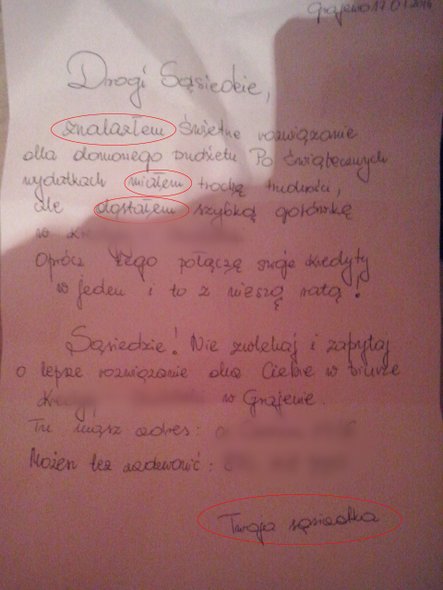 Grajewo 17.01.2014
Drogi Sąsiedzie,
znalazłem świetne rozwiązanie
dla domowego budżetu Po świątecznych
wydatkach miałem trochę trudności,
ale dostałem szybką gotówkę
w
Oprócz tego połączę swoje kredyty
w jeden i to z niższą ratą!
Sąsiedzie! Nie zwlekaj i zapytaj
o lepsze rozwiązanie dla Ciebie w biurze
w Grajewie.
Tu masz adres:
Możesz też zadzwonić:
Twoja sąsiadka